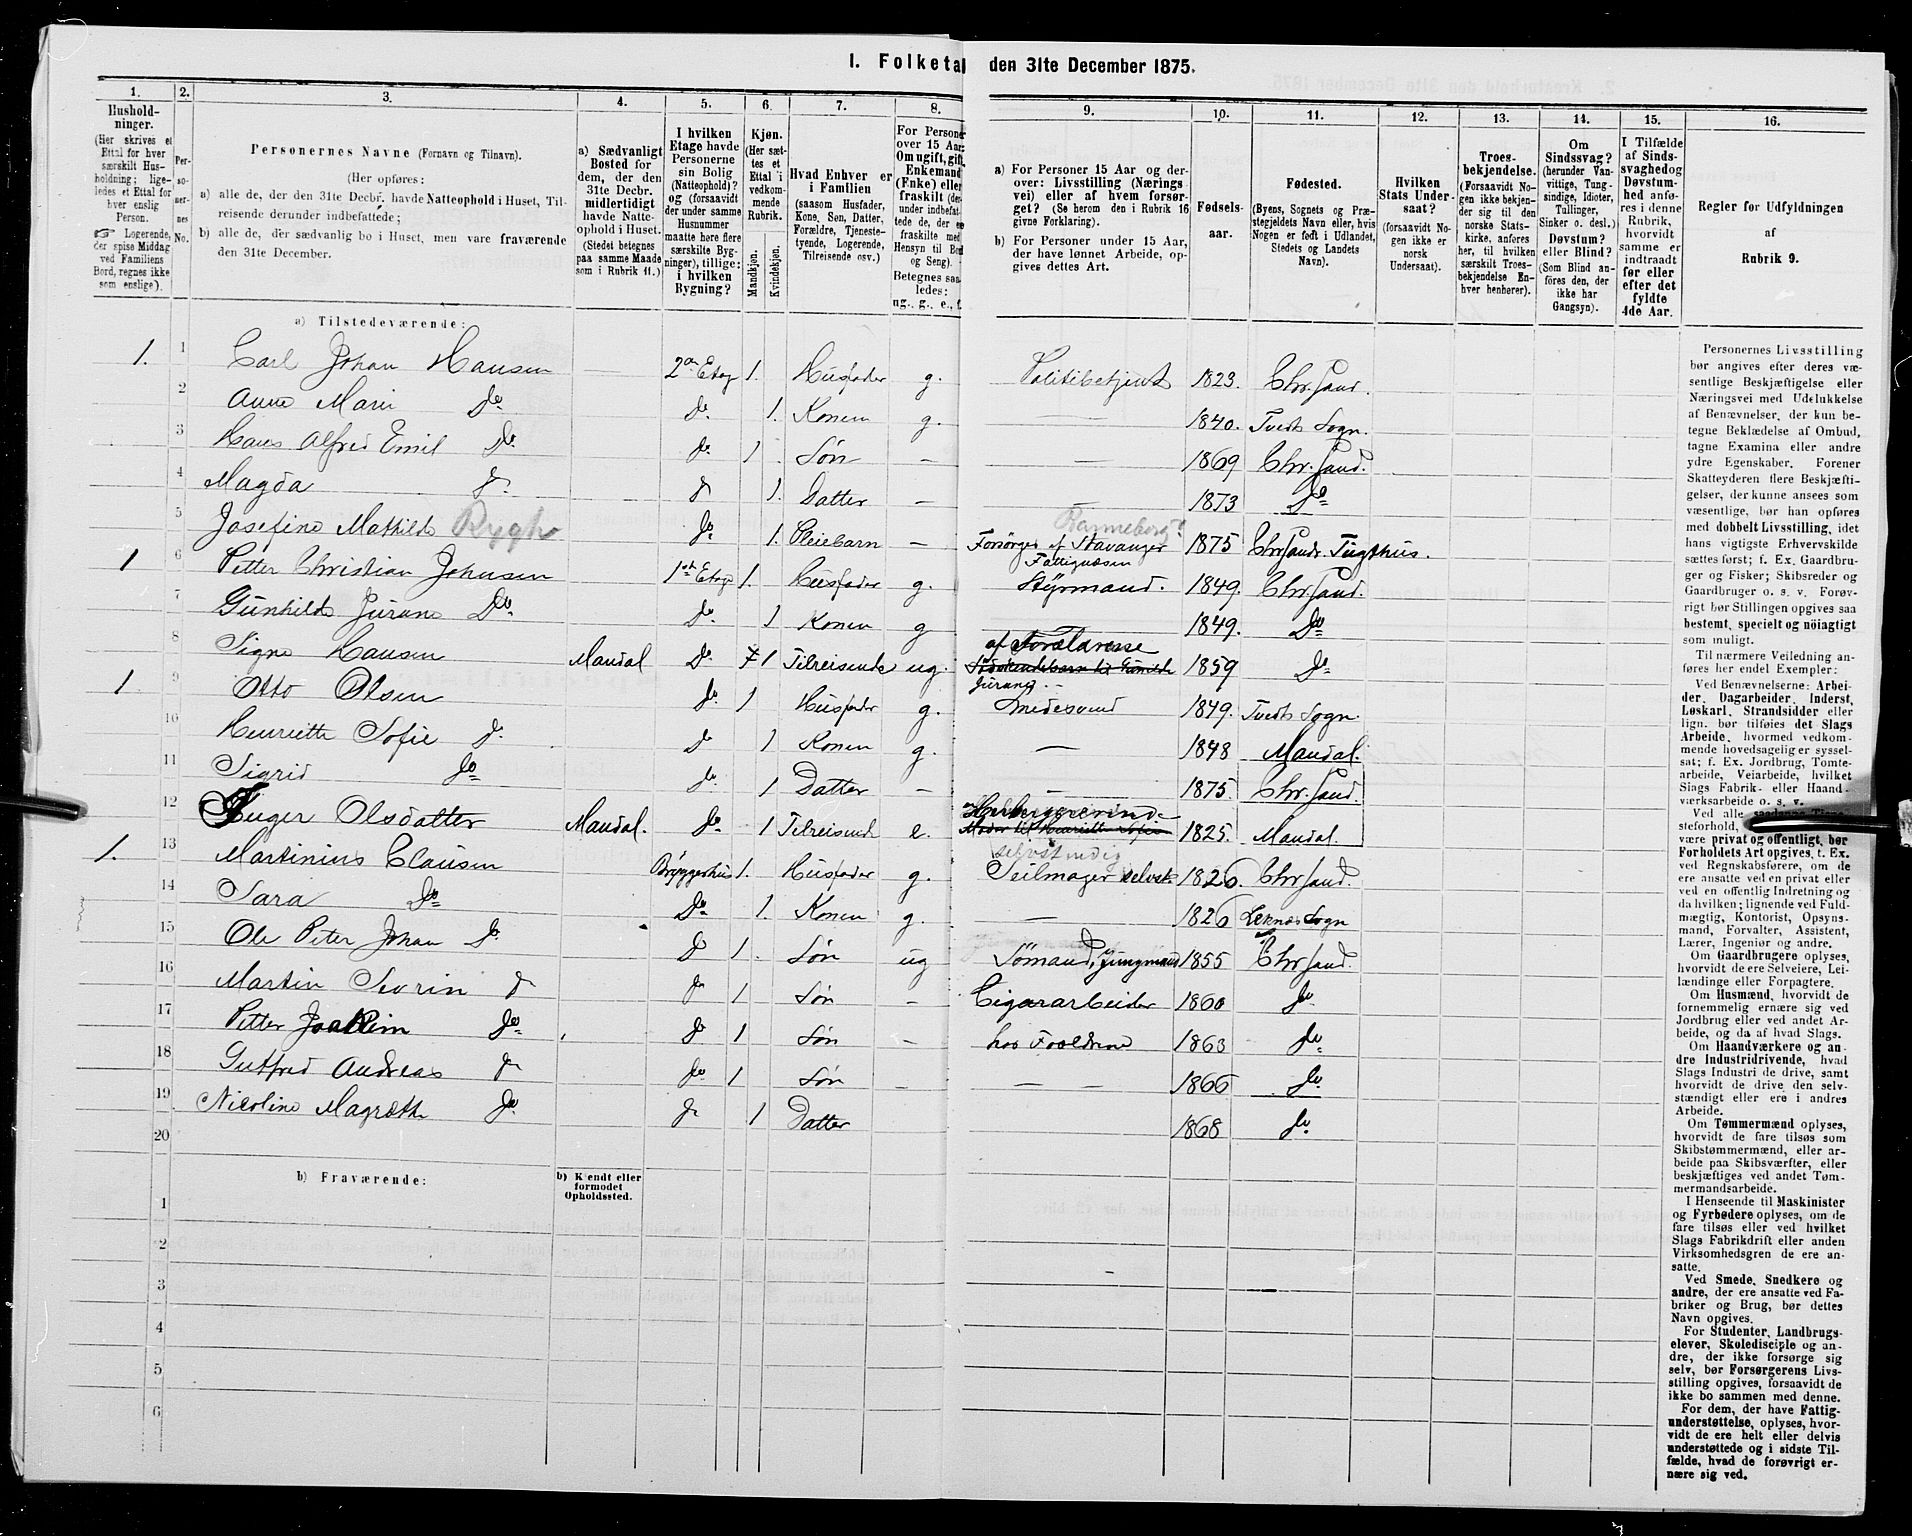 1. Folketal den 31te December 1875.
1.
Hushold-
ninger.
(Her skrives et
Ettal for hver
særskilt Hus-
holdning; lige-
ledes et Ettal for
hver enslig
Person.
☞ Logerende,
der spise Middag
ved Familiens
Bord, regnes ikke
som enslige).
2.
Per-
so-
ner-
nes
No.
3.
Personernes Navne (Fornavn og Tilnavn).
(Her opføres:
a) alle de, der den 31te Decbr. havde Natteophold i Huset, Til-
reisende derunder indbefattede;
b) alle de, der sædvanlig bo i Huset, men vare fraværende
den 31te December.
4.
a) Sædvanligt
Bosted for
dem, der den
31te Decbr.
midlertidigt
havde Natte-
ophold i Huset.
(Stedet betegnes
paa samme Maade
som i Rubrik 11.)
5.
I hvilken
Etage havde
Personerne
sin Bolig
(Natteophold)?
og (forsaavidt
der under samme
Husnummer
maatte høre flere
særskilte Byg-
ninger), tillige:
i hvilken
Bygning?
6.
Kjøn.
(Her sæt-
tes et
Ettal i
vedkom-
mende
Rubrik.
Mandkjøn.
Kvindekjøn.
7.
Hvad Enhver er
i Familien
(saasom Husfader,
Kone, Søn, Datter,
Forældre, Tjeneste-
tyende, Logerende,
Tilreisende osv.)
8.
For Personer
over 15 Aar:
Om ugift, gift,
Enkemand
(Enke) eller
fraskilt (der-
under indbefat-
tede de, der ere
fraskilte med
Hensyn til Bord
og Seng).
Betegnes saa-
ledes:
ug., g., e., f.
9.
a) For Personer 15 Aar og der-
over: Livsstilling (Nærings
vei) eller af hvem forsør-
get? (Se herom den i Rubrik 16
givne Forklaring).
b) For Personer under 15 Aar,
der have lønnet Arbeide, op-
gives dettes Art.
10.
Fødsels-
aar.
11.
Fødested.
(Byens, Sognets og Præ-
stegjeldets Navn eller, hvis
Nogen er født i Udlandet,
Stedets og Landets
Navn).
12.
Hvilken
Stats Under-
saat?
(forsaavidt No-
gen ikke er
norsk
Undersaat).
13.
Troes-
bekjendelse.
(Forsaavidt No-
gen ikke bekjen-
der sig til den
norske Stats-
kirke, anføres
her, til hvilken
særskilt Troes-
bekjendelse En-
hver henhører).
14.
Om
Sindssvag?
(herunder Van-
vittige, Tung-
sindige, Idioter,
Tullinger,
Sinker o. desl.)
Døvstum?
eller Blind?
(Som Blind an-
føres den, der
ikke har
Gangsyn).
15.
I Tilfælde
af Sinds-
svaghed og
Døvstum-
hed anfø-
res i denne
Rubrik,
hvorvidt
samme er
indtraadt
før eller
efter det
fyldte
4de Aar.
16.
Regler for Udfyldningen
af
Rubrik 9.
a) Tilstedeværende:
1. 1 Carl Johan Hansen 2den Etag 1. Husfader g. Politibetjent 1823. Chr.sand.
2 Anne Marie Do Do 1. Konen g. — 1840. Tveds Sogn.
3 Hans Alfred Emil Do Do 1 Søn — — 1869 Chr.sand.
4 Magda Do Do 1. Datter — — 1873 Do
5 Josefine Mathilde Rygh Do 1. Pleiebarn — Forsørges af Stavanger Fattigvæsen 1875 Chrsands Tugthus.
1 6 Petter Christian Johnsen 1st Etage 1. Husfader g. Styrmand. 1849. Chr.sand.
7 Gunhild Jurane Do Do 1 Konen g — 1849. Do
8 Signe Hansen Mandal Do 1 Tilreisende ug. af Forældrene 1859 Do
1 9 Otto Olsen Do 1 Husfader g. Smedesvend 1849. Tveds Sogn.
10 Henriette Sofie Do Do 1 Konen g. — 1848 Mandal.
11 Sigrid Do Do 1 Datter — — 1875. Chr.sand.
12 Inger Olsdatter Mandal. Do 1 Tilreisende e. 1825. Mandal.
1. 13 Martinius Clausen Bryggerhus 1. Husfader g. Seilmager selvst. 1826. Chr.sand.
14 Sara Do Do 1. Konen g. — 1826 Sogn
15 Ole Peter Johan Do Do 1. Søn ug Sømand, Jungmand 1855 Chr.sand.
16 Martin Severin Do Do 1 Søn — Cigararbeider 1860 Do
17 Petter Joakim Do Do 1 Søn — hos Forældrene 1863 Do
18 Gutfred Andreas Do Do 1 Søn — — — 1866 Do
19 Nicoline Magrethe Do Do 1 Datter 1868 Do
20
b) Fraværende:
b) Kjendt eller
formodet
Opholdssted.
1
2
3
4
5
6
Personernes Livsstilling
bør angives efter deres væ-
sentlige Beskjæftigelse eller
Næringsvei med Udelukkelse
af Benævnelser, der kun be-
tegne Beklædelse af Ombud,
tagne Examina eller andre
ydre Egenskaber. Forener
Skatteyderen flere Beskjæfti-
gelser, der kunne ansees som
væsentlige, bør han opføres
med dobbelt Livsstilling, idet
hans vigtigste Erhvervskilde
sættes først; f. Ex. Gaardbru-
ger og Fisker; Skibsreder og
Gaardbruger o. s. v. Forøv-
rigt bør Stillingen opgives saa
bestemt, specielt og nøiagtigt
som muligt.
Til nærmere Veiledning an-
føres her endel Exempler:
Ved Benævnelserne: Arbei-
der, Dagarbeider, Inderst,
Løskarl, Strandsidder eller
lign. bør tilføies det Slags
Arbeide, hvormed vedkom-
mende hovedsagelig er syssel-
sat; f. Ex. Jordbrug, Tomte-
arbeide, Veiarbeide, hvilket
Slags Fabrik- eller Haand-
værksarbeide o. s. v.
Ved alle saadanne Tjene-
steforhold,
være privat og offentligt, bør
Forholdets Art opgives, t. Ex.
ved Regnskabsførere, om de
ere ansatte ved en privat eller
ved en offentlig Indretning og
da hvilken; lignende ved Fuld-
mægtig, Kontorist, Opsyns-
mand, Forvalter, Assistent,
Lærer, Ingeniør og andre.
Om Gaardbrugere oplyses,
hvorvidt de ere Selveiere, Lei-
lændinge eller Forpagtere.
Om Husmænd, hvorvidt de
fornemmelig ernære sig ved
Jordbrug eller ved andet Ar-
beide, og da af hvad Slags.
Om Haandværkere og an-
dre Industridrivende, hvad
Slags Industri de drive, samt
hvorvidt de drive den selv-
stændigt eller ere i andres
Arbeide.
Om Tømmermænd oplyses,
hvorvidt de fare tilsøs som
Skibstømmermænd, eller ar-
beide paa Skibsværfter, eller
beskjæftiges ved andet Tøm-
mermandsarbeide.
I Henseende til Maskinister
og Fyrbødere oplyses, om de
fare tilsøs eller ved hvilket
Slags Fabrikdrift eller anden
Virksomhedsgren de ere an-
satte.
Ved Smede, Snedkere og
andre, der ere ansatte ved Fa-
briker og Brug, bør dettes
Navn opgives.
For Studenter, Landbrugs-
elever, Skoledisciple og an-
dre, der ikke forsørge sig
selv, bør Forsørgerens Livs-
stilling opgives, forsaavidt de
ikke bo sammen med denne.
For dem, der have Fattig-
understøttelse, oplyses, hvor-
vidt de ere helt eller delvis
understøttede og i sidste Til-
fælde, hvad de forøvrigt er-
nære sig ved.